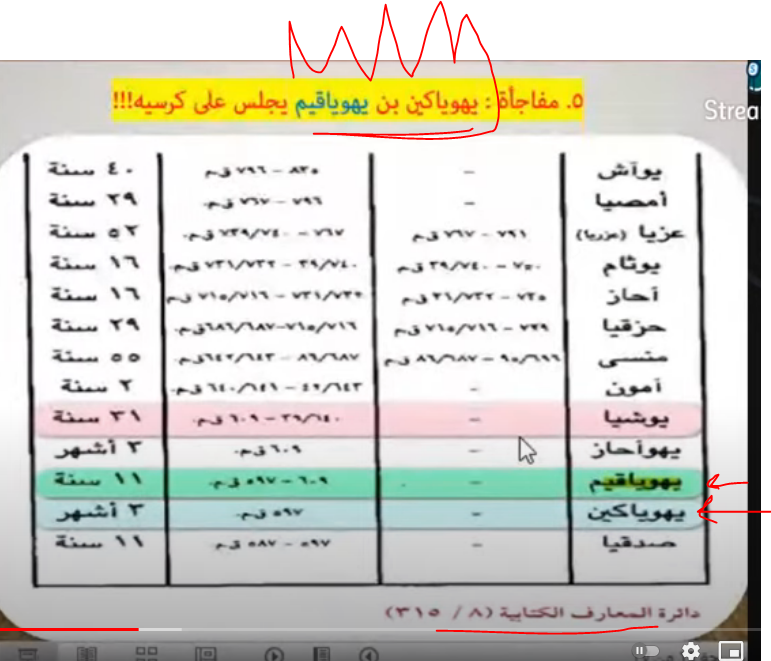 Strea
٥. مفاجأة : يهوياكين بن يهوياقيم يجلس على كرسيه!!!
يوآش – ٨٣٥ – ٧٩٦ ق.م ٤٠ سنة
أمصيا – ٧٩٦ – ٧٦٧ ق.م. ٢٩ سنة
عزيا (عزريا) ٧٩١ – ٧٦٧ ق.م ٧٦٧ – ٧٣٩/٧٤٠ ق.م. ٥٢ سنة
يوثام ٧٥٠ – ٣٩/٧٤٠ ق.م ٣٩/٧٤٠ – ٧٣١/٧٣٢ ق.م. ١٦ سنة
آحاز ٧٣٥ – ٣١/٧٣٢ ق.م ٧٣١/٧٣٢ – ٧١٥/٧١٦ ق.م ١٦ سنة
حزقيا ٧٢٩ – ٧١٥/٧١٦ ق.م ٧١٥/٧١٦–٦٨٦/٦٨٧ق.م. ٢٩ سنة
منسى ٩٥/٦٩٦ – ٨٦/٦٨٧ ق.م ٨٦/٦٨٧ – ٦٤٢/٦٤٣ ق.م. ٥٥ سنة
آمون – ٤٢/٦٤٣ – ٦٤٠/٦٤١ ق.م. ٢ سنة
يوشيا – ٣٩/٦٤٠ – ٦٠٩ ق.م. ٣١ سنة
يهوآحاز – ٦٠٩ ق.م. ٣ أشهر
يهوياقيم – ٦٠٩ – ٥٩٧ ق.م ١١ سنة
يهوياكين – ٥٩٧ ق.م ٣ أشهر
صدقيا – ٥٩٧ – ٥٨٧ ق.م ١١ سنة
دائرة المعارف الكتابية (٨ / ٣١٥)